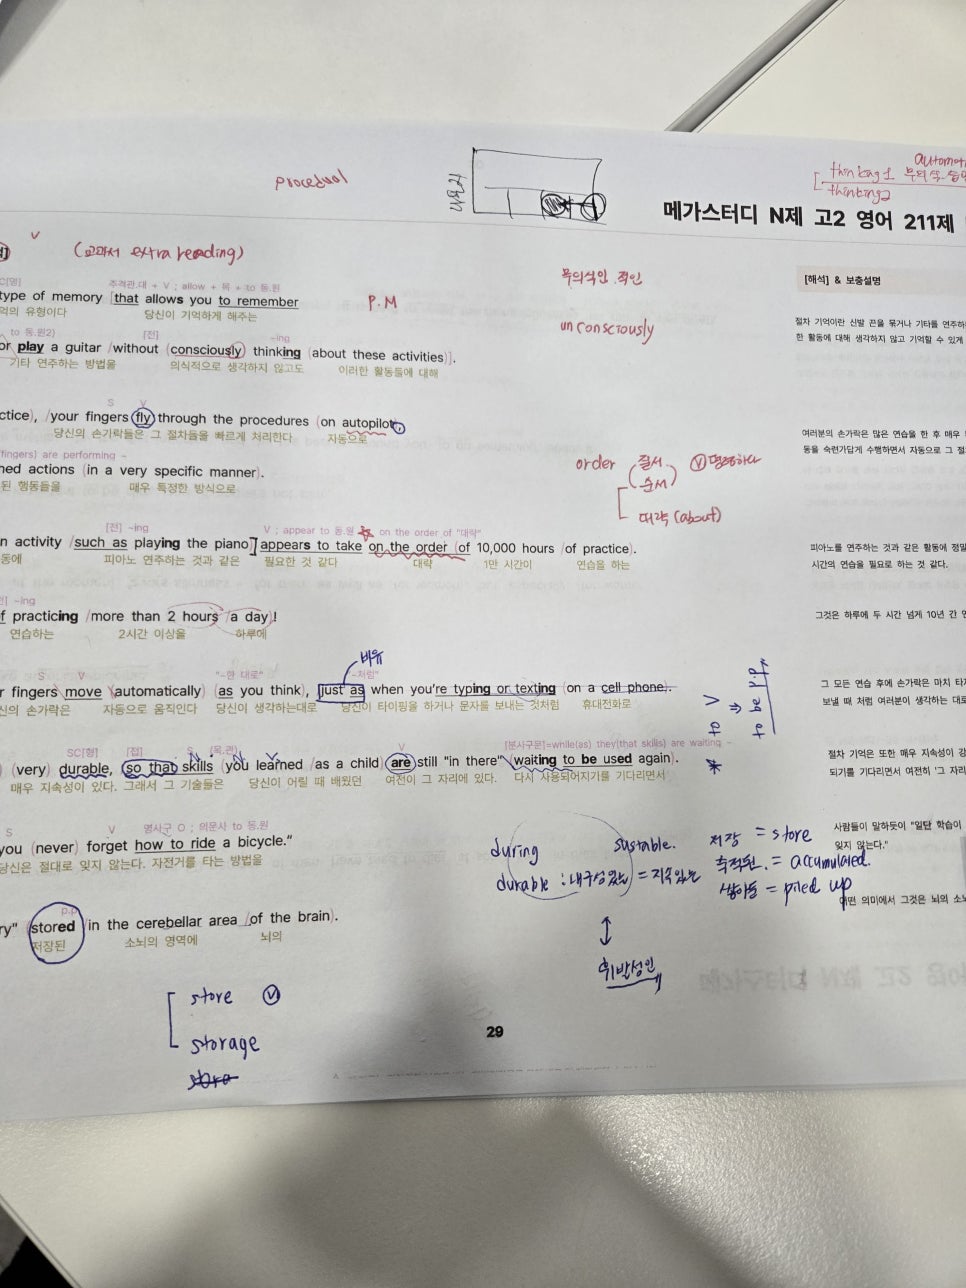 procedual
automati
thinking 1 무의식
thinking 2
메가스터디 N제 고2 영어 211제
(교과서 extra reading)
[해석] & 보충설명
주격관.대 + V ; allow + 목 + to 동.원
type of memory [that allows you to remember
억의 유형이다 당신이 기억하게 해주는
P.M
무의식인 적인
unconsciously
절차 기억이란 신발 끈을 묶거나 기타를 연주하
한 활동에 대해 생각하지 않고 기억할 수 있게
to 동.원2) [전] ~ing
or play a guitar /without (consciously) thinking (about these activities)].
기타 연주하는 방법을 의식적으로 생각하지 않고도 이러한 활동들에 대해
S V
ctice), /your fingers fly through the procedures (on autopilot).
당신의 손가락들은 그 절차들을 빠르게 처리한다 자동으로
여러분의 손가락은 많은 연습을 한 후 매우
동을 숙련가답게 수행하면서 자동으로 그 절
fingers) are performing ~
ned actions (in a very specific manner).
된 행동들을 매우 특정한 방식으로
order 질서 ⓥ명령하다
순서
대략 (about)
[전] ~ing V ; appear to 동.원 on the order of "대략"
n activity /such as playing the piano] appears to take on the order (of 10,000 hours /of practice).
동에 피아노 연주하는 것과 같은 필요한 것 같다 대략 1만 시간이 연습을 하는
피아노를 연주하는 것과 같은 활동에 정밀
시간의 연습을 필요로 하는 것 같다.
~ing
f practicing /more than 2 hours /a day)!
연습하는 2시간 이상을 하루에
그것은 하루에 두 시간 넘게 10년 간 연
비유
S V "~한 대로" "~처럼"
r fingers move (automatically) (as you think), just as when you're typing or texting (on a cell phone).
신의 손가락은 자동으로 움직인다 당신이 생각하는대로 당신이 타이핑을 하거나 문자를 보내는 것처럼 휴대전화로
그 모든 연습 후에 손가락은 마치 타자
보낼 때 처럼 여러분이 생각하는 대로
SC[형] [접] S (목.관) V [분사구문]=while(as) they(that skills) are waiting ~
) (very) durable, so that skills (you learned /as a child) are still "in there" waiting to be used again).
매우 지속성이 있다. 그래서 그 기술들은 당신이 어릴 때 배웠던 여전히 그 자리에 있다. 다시 사용되어지기를 기다리면서
절차 기억은 또한 매우 지속성이 강
되기를 기다리면서 여전히 '그 자리
S V 명사구 O ; 의문사 to 동.원
you (never) forget how to ride a bicycle."
당신은 절대로 잊지 않는다. 자전거를 타는 방법을
사람들이 말하듯이 "일단 학습이
잊지 않는다."
during sustable. 저장 = store
durable : 내구성있는 = 지속있는 축적된. = accumulated.
쌓아둔 = piled up
휘발성인
p.p
ry" (stored in the cerebellar area /of the brain).
저장된 소뇌의 영역에 뇌의
어떤 의미에서 그것은 뇌의 소뇌
store ⓥ
storage
29